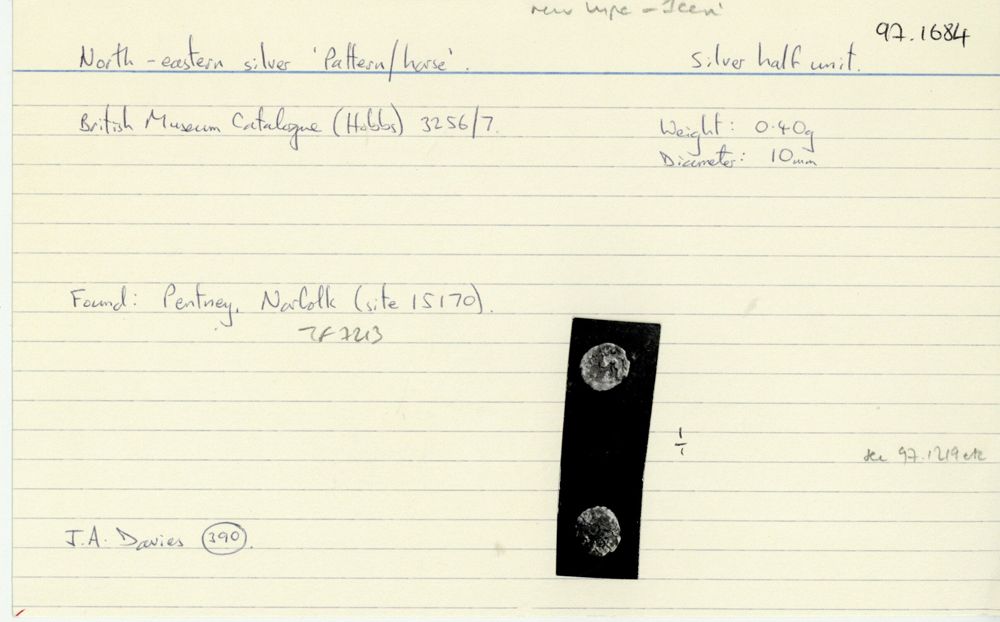 new type - Iceni
97.1684
North-eastern silver 'Pattern/horse'. Silver half unit.
British Museum Catalogue (Hobbs) 3256/7. Weight: 0.40g
Diameter: 10mm
Found: Pentney, Norfolk (site 15170).
TF 7213
1/1
see 97.1219 etc
J.A. Davies (390).